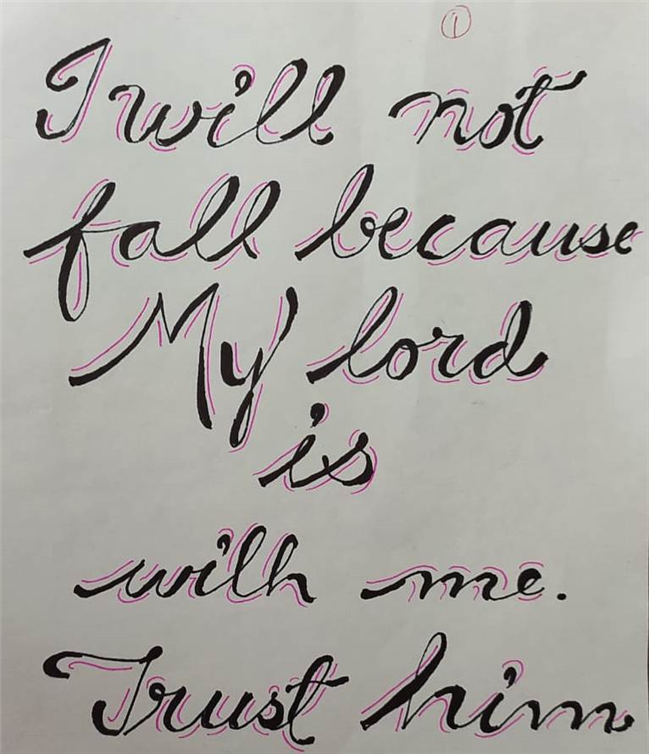 1
I will not
fall because
My lord
is
with me.
Trust him